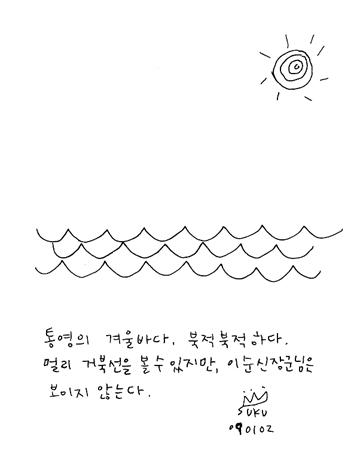 통영의 겨울바다. 북적북적하다.
멀리 거북선을 볼 수 있지만, 이순신장군님은
보이지 않는다.
SUKU
090102